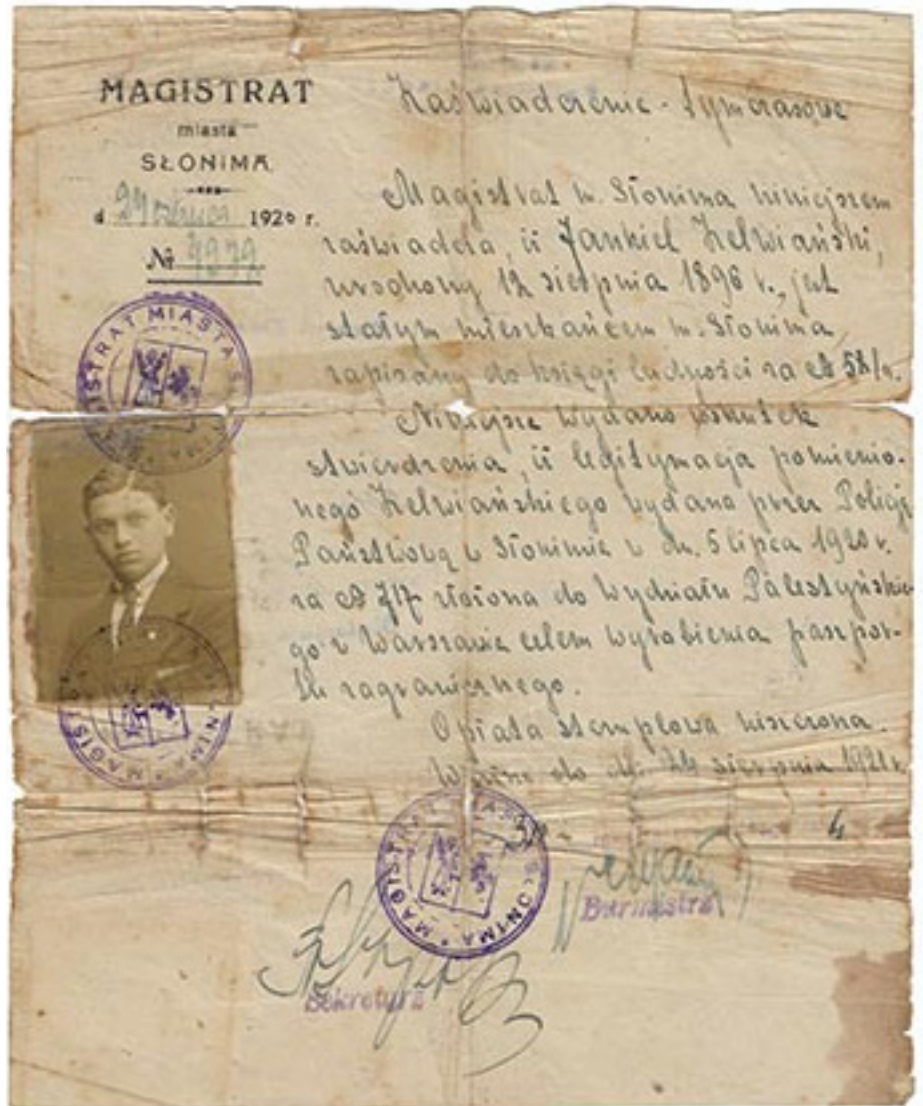 MAGISTRAT
miasta
SŁONIMA
d 1920 r.
№
Zaświadczenie - tymczasowe
Magistrat m. Słonima niniejszem
zaświadcza, iż Jankiel Zelwiański,
urodzony 12 sierpnia 1896 r., jest
stałym mieszkańcem m. Słonima
zapisany do księgi ludności za № 58/
Niniejsze wydano wskutek
stwierdzenia, iż legitymacja pomienio-
nego Zelwiańskiego wydana przez Policję
Państwową w Słonimie w dn. 5 lipca 1920 r.
za № 717 złożona do Wydziału Palestyńskie-
go w Warszawie celem wyrobienia paszpor-
tu zagranicznego.
Opłata stemplowa uiszczona.
Ważne do dn. 24 sierpnia 1921 r.
MAGISTRAT MIASTA SŁONIMA
MAGISTRAT MIASTA SŁONIMA
MAGISTRAT MIASTA SŁONIMA
Burmistrz
Sekretarz